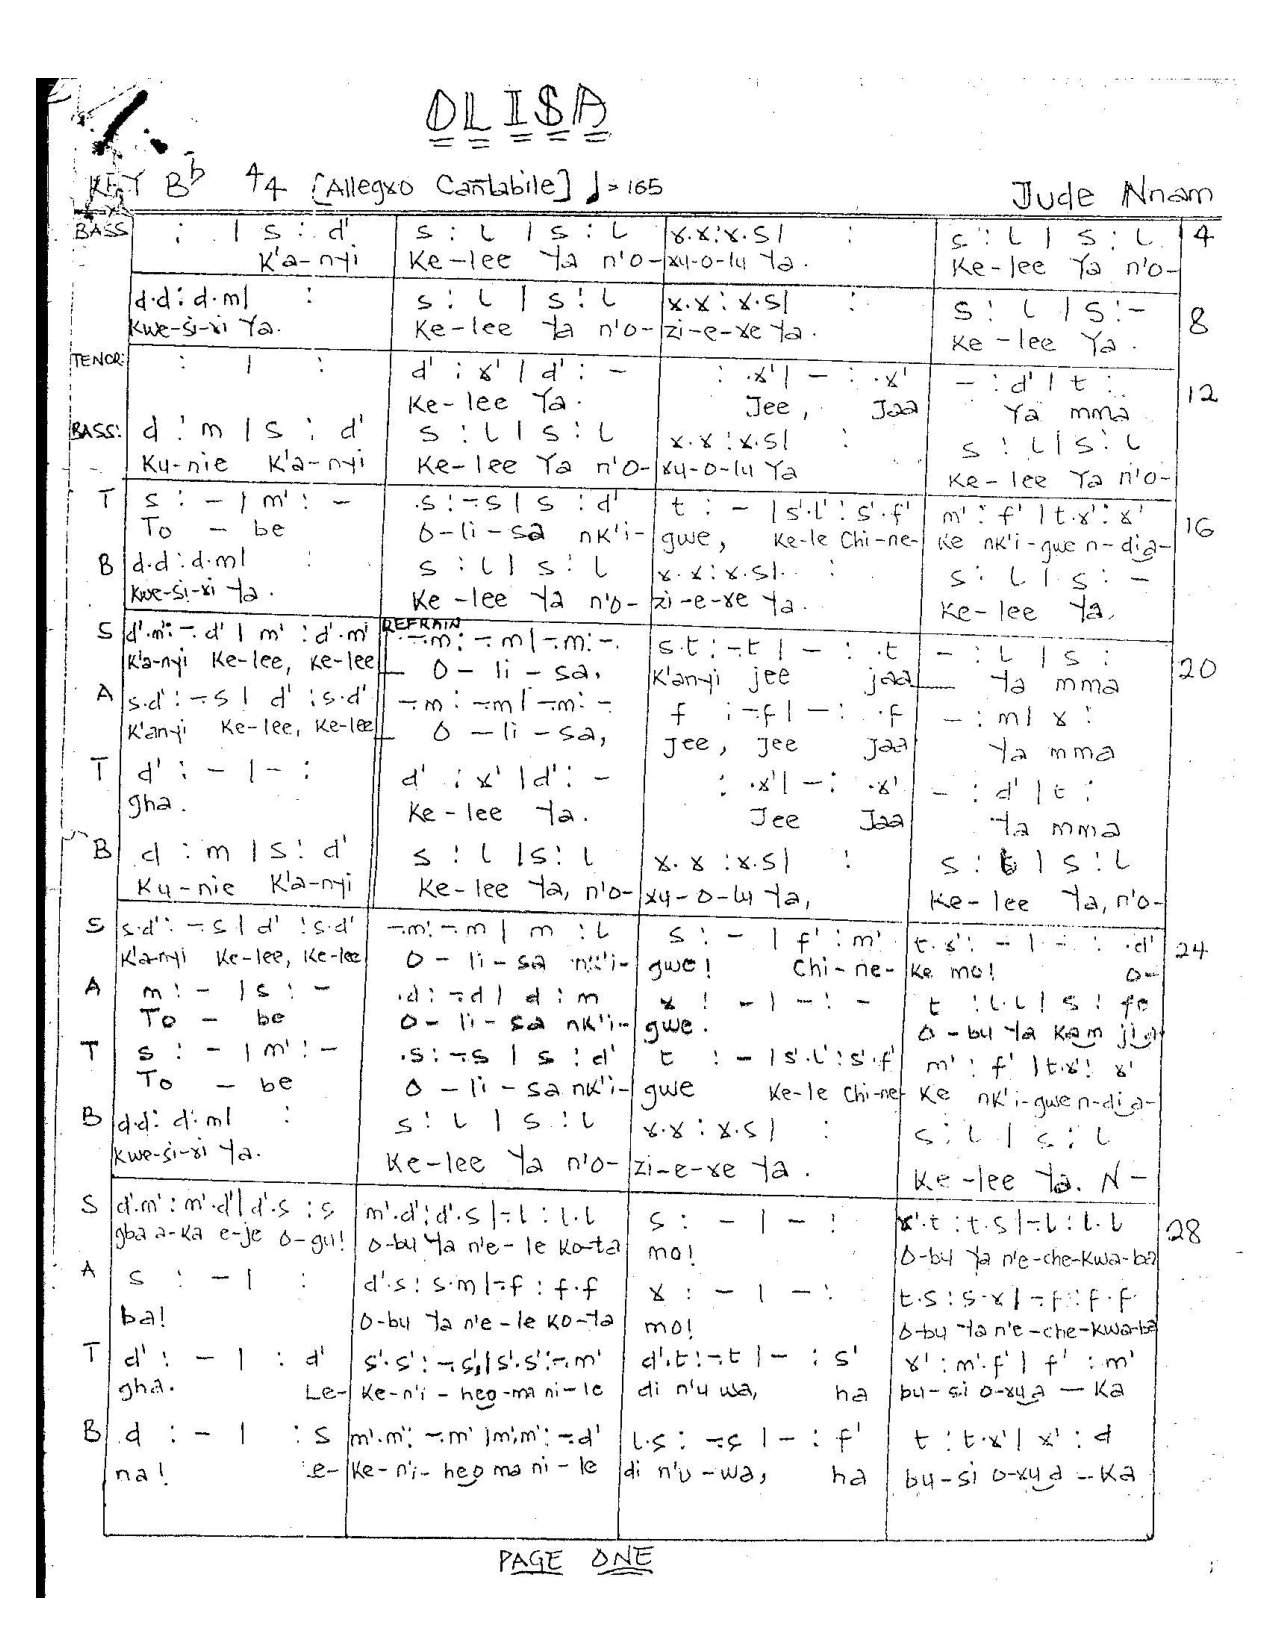 OLISA
KEY Bb 4/4 [Allegro Cantabile] ♩=165 Jude Nnam
BASS : | s : d' s : l | s : l r.r:r.s| : s : l | s : l 4
K'a-nyi Ke-lee Ya n'o- ru-o-lu Ya. Ke-lee Ya n'o-
d.d:d.m| : s : l | s : l r.r:r.s| : s : l | s :- 8
Kwe-si-ri Ya. Ke-lee Ya n'o- zi-e-re Ya. Ke-lee Ya.
TENOR: : | : d' : r' | d' : - : .r'| - : .r' - : d' | t : 12
Ke-lee Ya. Jee, Jaa Ya mma
BASS: d : m | s : d' s : l | s : l r.r:r.s| : s : l | s : l
Ku-nie K'a-nyi Ke-lee Ya n'o- ru-o-lu Ya Ke-lee Ya n'o-
T s : - | m' : - .s:-.s | s : d' t : - | s'.l':s'.f' m' : f' | t.r' : r' 16
To - be O-li-sa nK'i- gwe, Ke-le Chi-ne- Ke nK'i-gwe n-dia-
B d.d:d.m| : s : l | s : l r.r:r.s| : s : l | s : -
Kwe-si-ri Ya. Ke-lee Ya n'o- zi-e-re Ya. Ke-lee Ya.
REFRAIN
S d'.m':-.d' | m' : d'.m' -.m:-.m | -.m:-. s.t:-.t | - : .t - : l | s : 20
K'a-nyi Ke-lee, Ke-lee O-li-sa, K'anyi jee jaa Ya mma
A s.d':-.s | d' : s.d' -.m:-.m | -.m:- f :-.f | - : .f - : m | r :
K'anyi Ke-lee, Ke-lee O-li-sa, Jee, Jee Jaa Ya mma
T d' : - | - : d' : r' | d' : - : .r'| - : .r' - : d' | t :
gha. Ke-lee Ya. Jee Jaa Ya mma
B d : m | s : d' s : l | s : l r.r:r.s| : s : l | s : l
Ku-nie K'a-nyi Ke-lee Ya, n'o- ru-o-lu Ya, Ke-lee Ya, n'o-
S s.d':-.s | d' : s.d' -.m:-.m | m : l s : - | f' : m' t.r' : - | - : .d' 24
K'a-nyi Ke-lee, Ke-lee O-li-sa nK'i- gwe! Chi-ne- Ke mo! O-
A m : - | s : - .d:-.d | d : m r : - | - : - t : l.l | s : fe
To - be O-li-sa nK'i- gwe. O-bu Ya Kam ji a
T s : - | m' : - .s:-.s | s : d' t : - | s'.l':s'.f' m' : f' | t.r' : r'
To - be O-li-sa nK'i- gwe Ke-le Chi-ne- Ke nK'i-gwe n-dia-
B d.d:d.m| : s : l | s : l r.r:r.s| : s : l | s : l
Kwe-si-ri Ya. Ke-lee Ya n'o- zi-e-re Ya. Ke-lee Ya. N-
S d'.m':m'.d'|d'.s:s m'.d':d'.s|-.l:l.l s : - | - : r'.t:t.s|-.l:l.l 28
gbaa-Ka e-je O-gu! O-bu Ya n'e-le Ko-ta mo! O-bu Ya n'e-che-Kwa-ba
A s : - | : d'.s:s.m|-.f:f.f r : - | - : t.s:s.r|-.f:f.f
ba! O-bu Ya n'e-le Ko-ta mo! O-bu Ya n'e-che-Kwa-ba
T d' : - | : d' s'.s':-.s'|s'.s':-.m' d'.t:-.t | - : s' r' : m'.f' | f' : m'
gha. Le- Ke-n'i-heo-ma ni-le di n'u wa, ha bu-si o-ru a - Ka
B d : - | : s m'.m':-.m'|m'.m':-.d' l.s:-.s | - : f' t : t.r' | r' : d
na! e- Ke-n'i-heo ma ni-le di n'u-wa, ha bu-si o-ru a - Ka
PAGE ONE